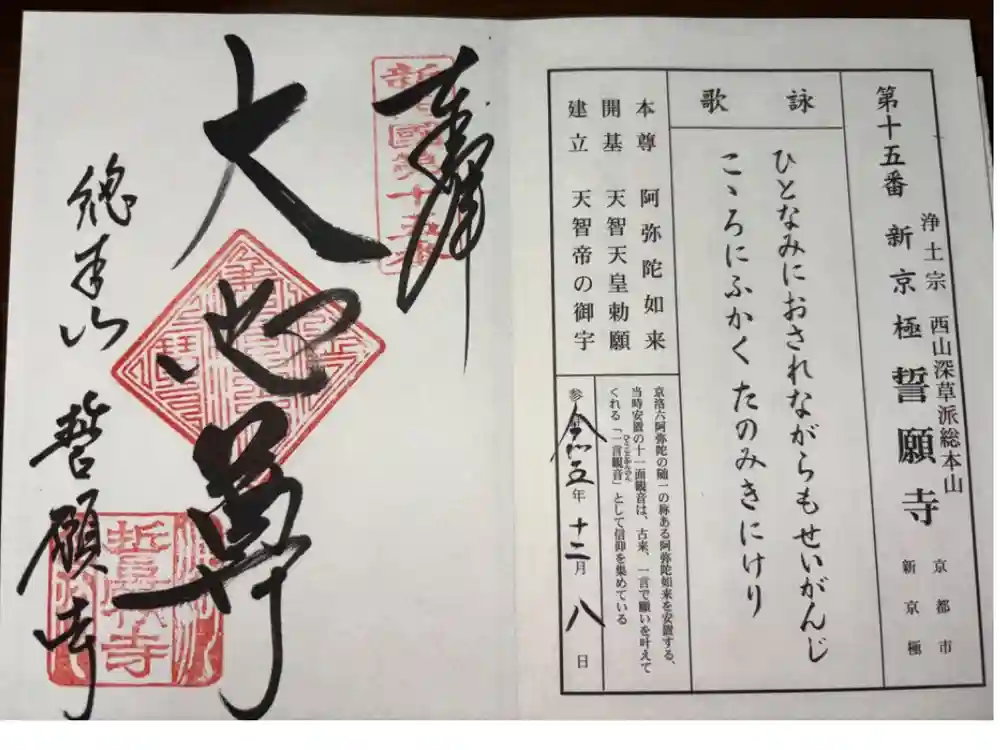 第十五番
浄土宗 西山深草派総本山
新京極 誓願寺
京都市
新京極
詠歌
ひとなみにおされながらもせいがんじ
こゝろにふかくたのみきにけり
本尊 阿弥陀如来
開基 天智天皇勅願
建立 天智帝の御宇
京洛六阿弥陀の随一の称ある阿弥陀如来を安置する、
当時安置の十一面観音は、古来、一言で願いを叶えて
くれる「一言観音」として信仰を集めている
五年十二月八日
奉拝
新西國第十五番
大悲尊
總本山 誓願寺
誓願寺